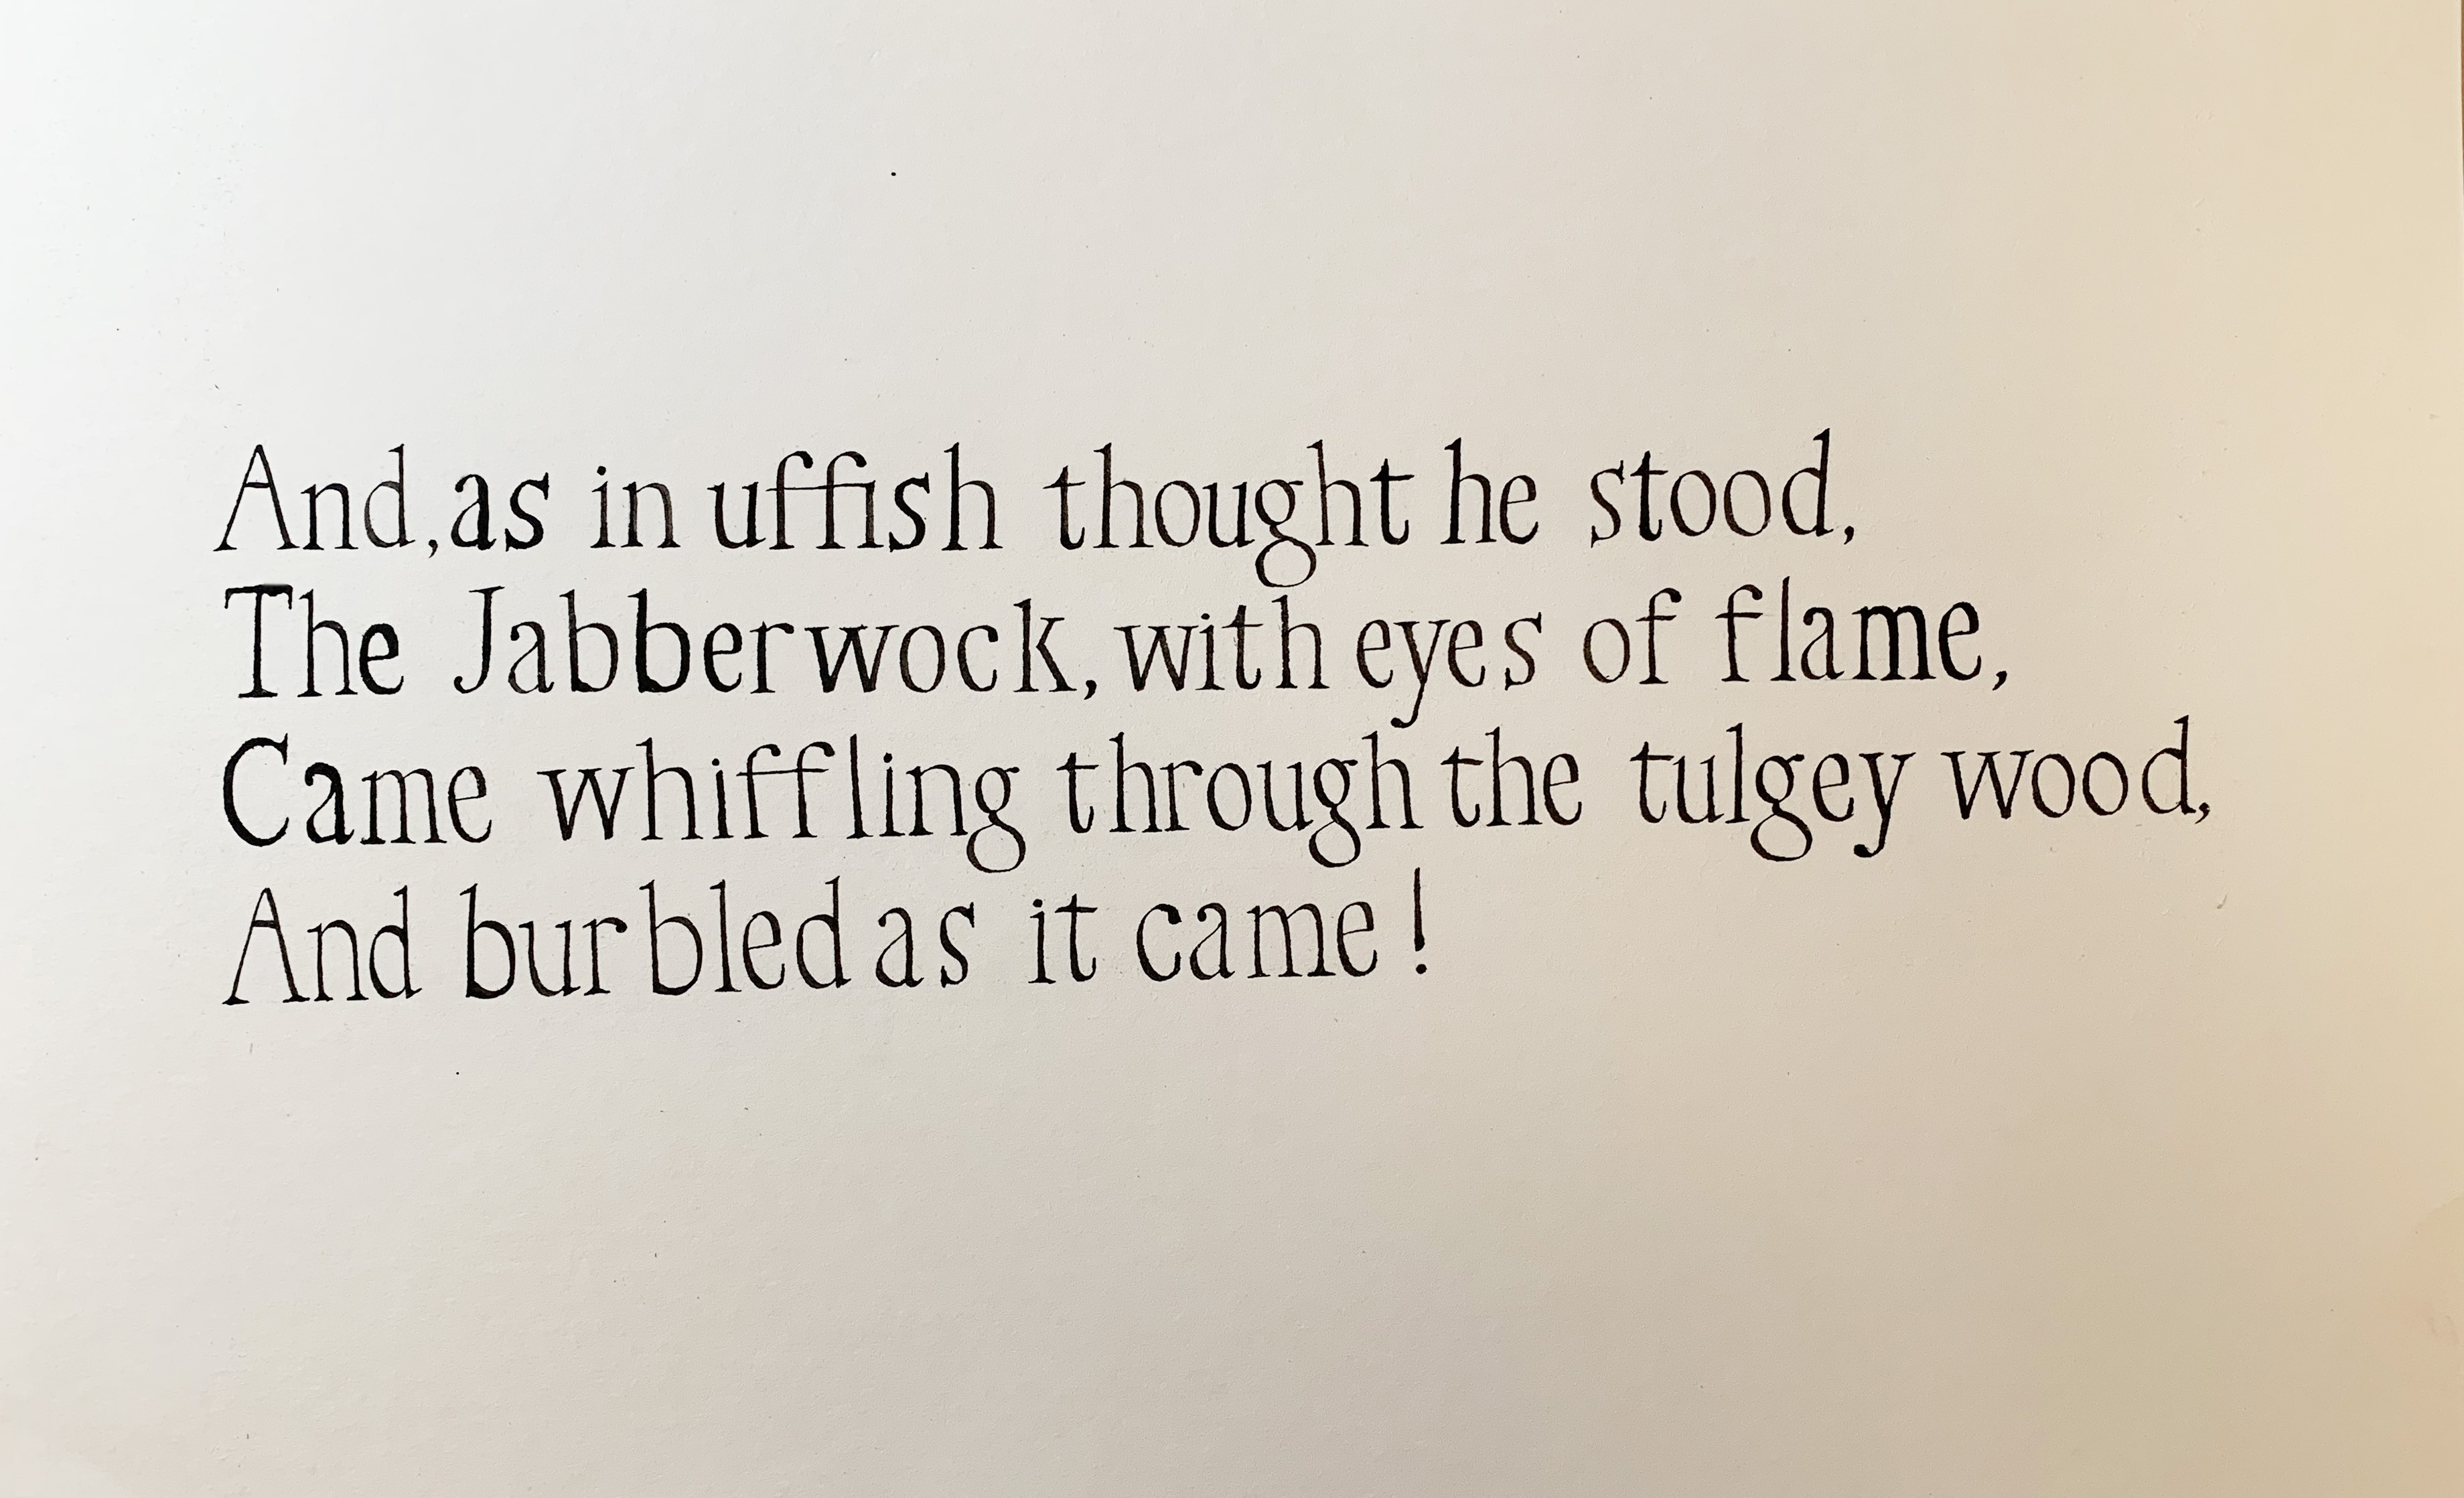 And, as in uffish thought he stood,
The Jabberwock, with eyes of flame,
Came whiffling through the tulgey wood,
And burbled as it came!